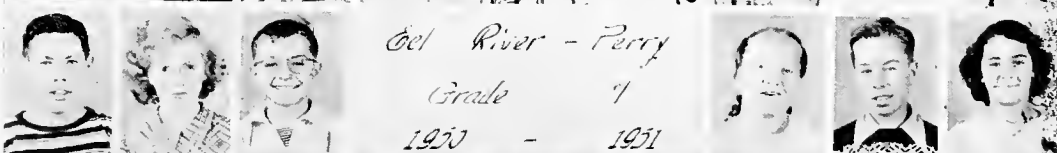 Eel River - Perry
Grade 7
1950 - 1951